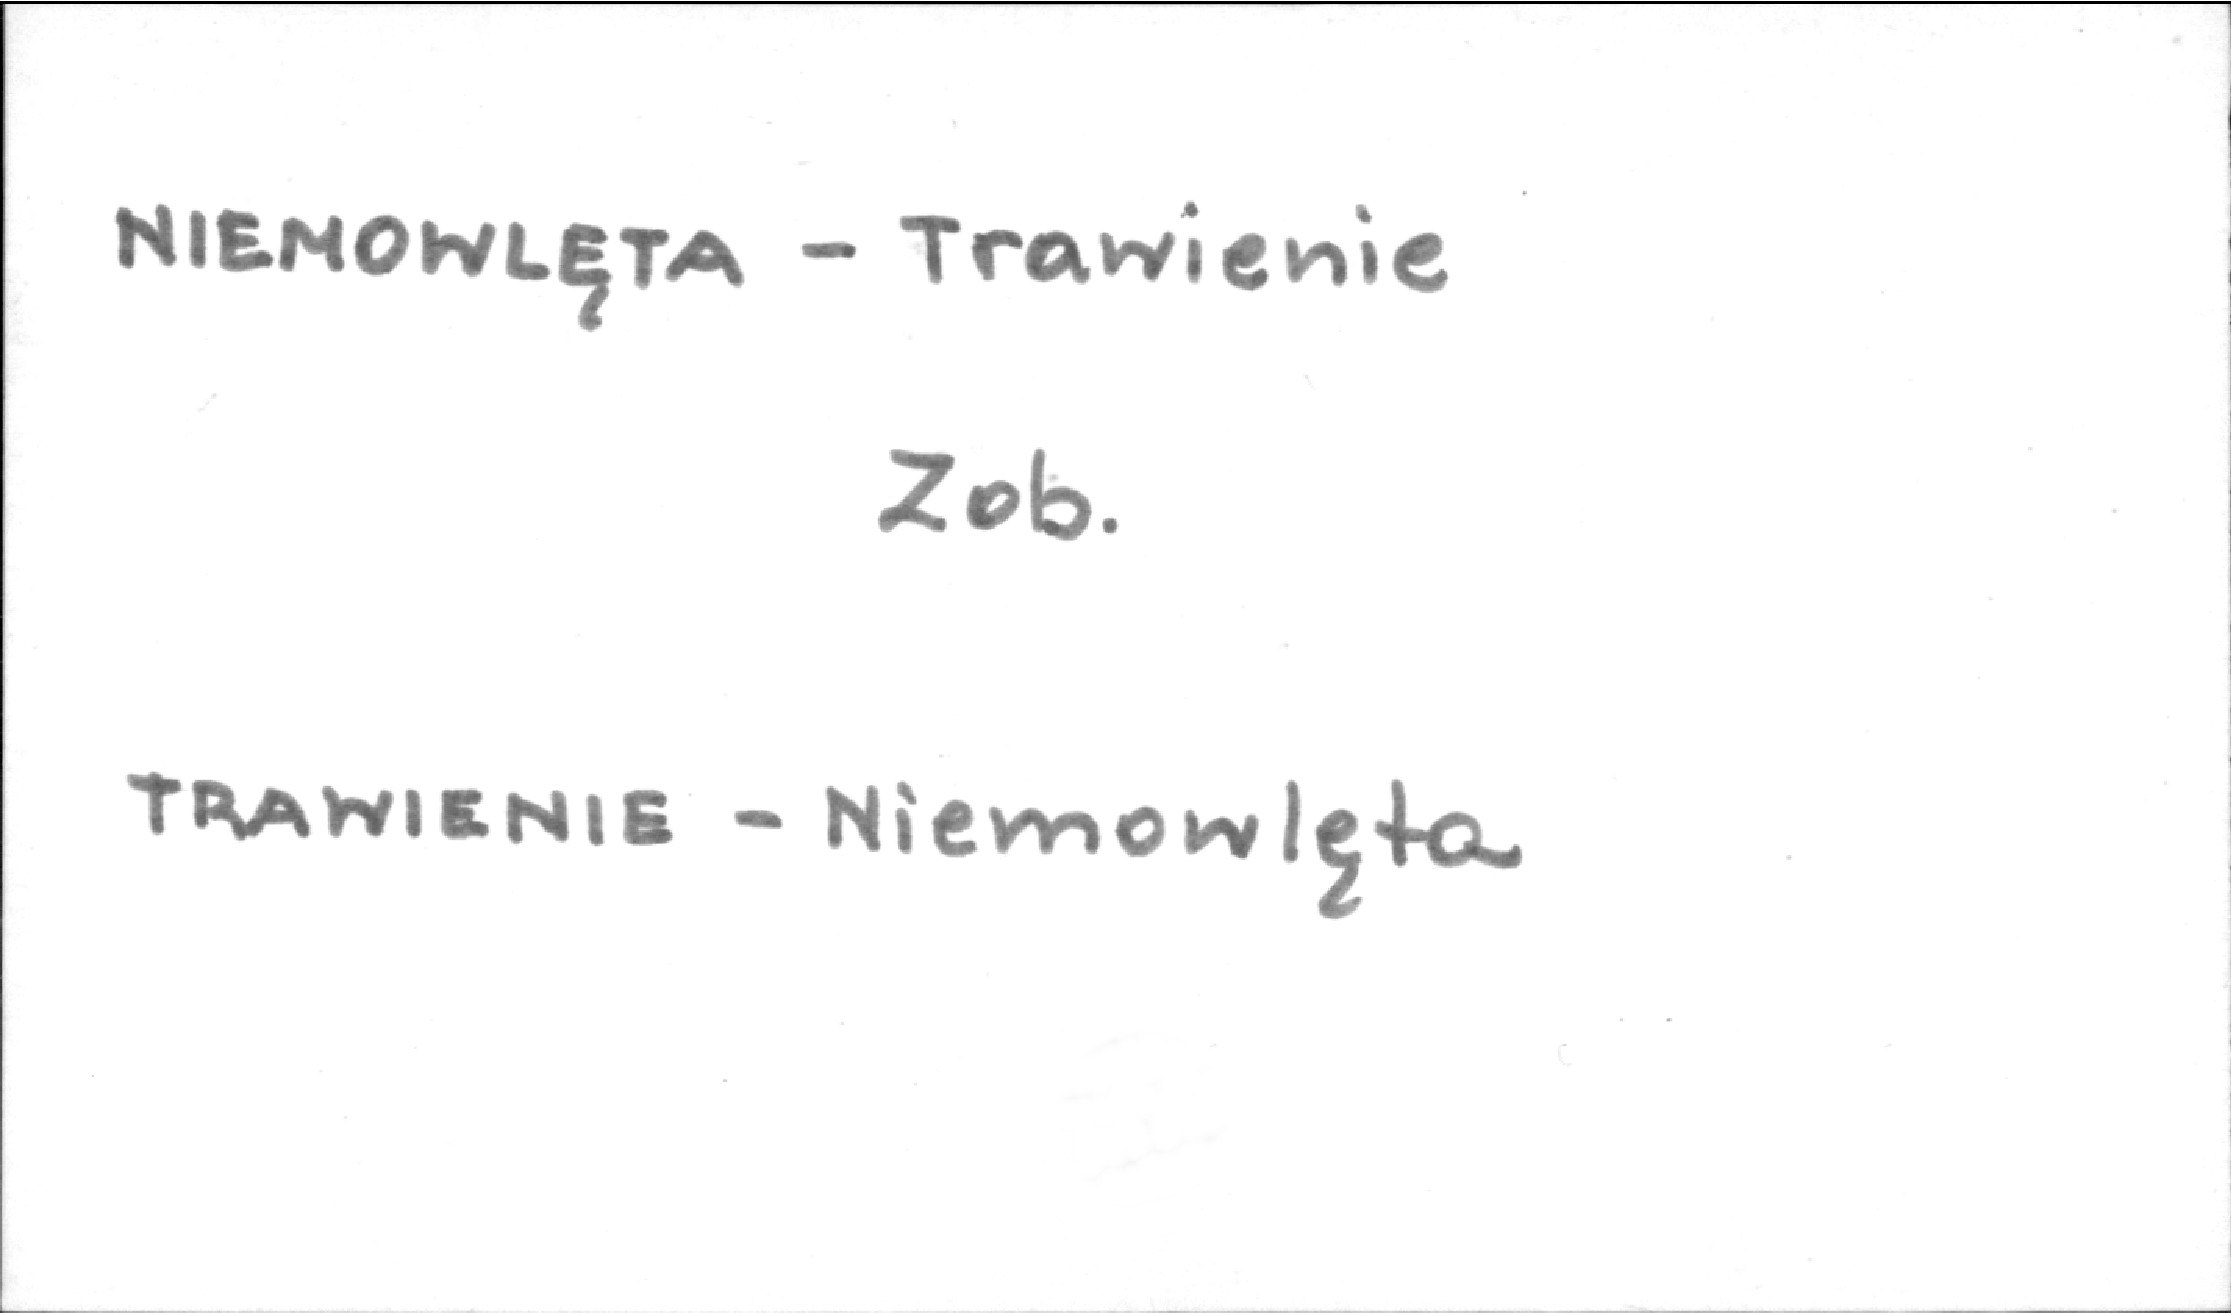 NIEMOWLĘTA - Trawienie
Zob.
TRAWIENIE - Niemowlęta